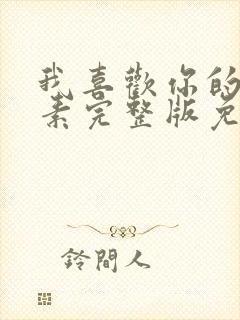 我喜歡你的
素完整版免
鈴間人